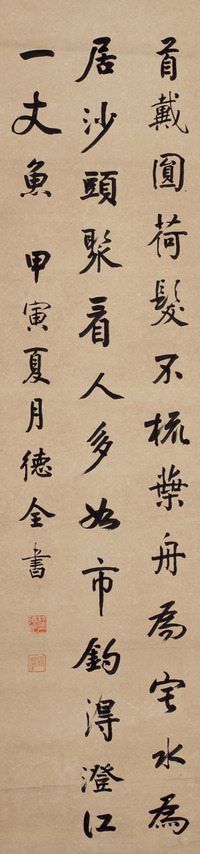 首戴圓荷髮不梳葉舟為宅水為
居沙頭聚看人多如市釣得澄江
一丈魚 甲寅夏月德全書